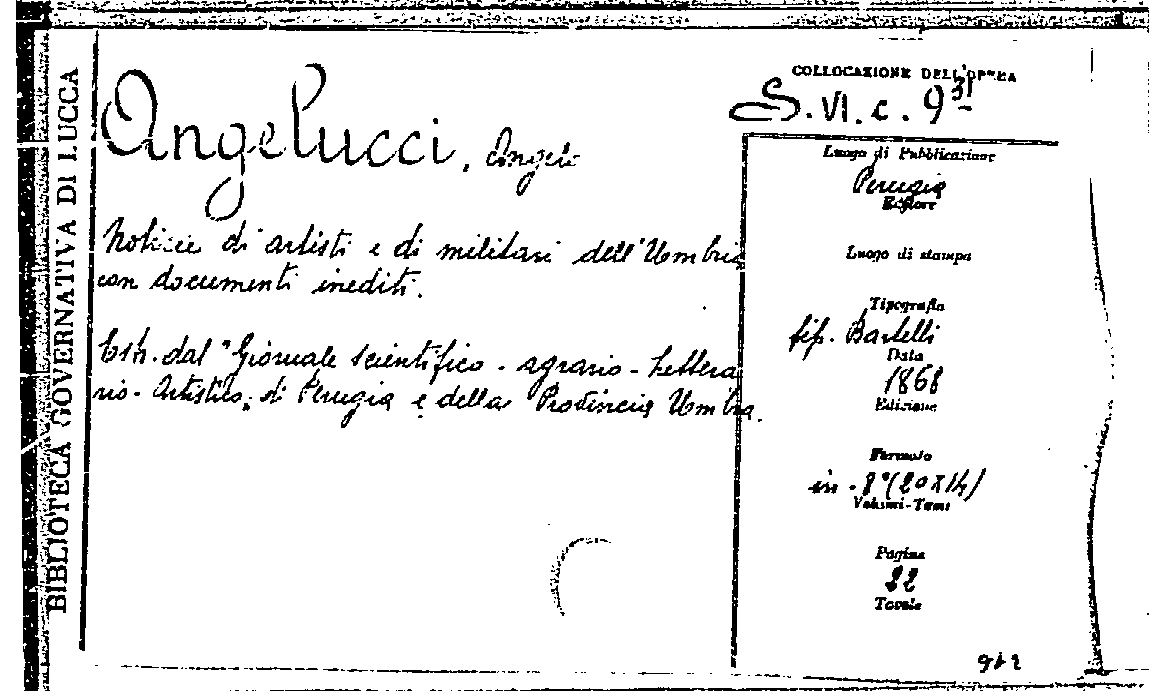 BIBLIOTECA GOVERNATIVA DI LUCCA
Angelucci, Angelo
Notizie di artisti e di militari dell'Umbria
con documenti inediti.
Estr. dal "Giornale scientifico - agrario - Lettera
rio - Artistico, di Perugia e della Provincia Umbra.
COLLOCAZIONE DELL'OPERA
S. VI. c. 9 31
Luogo di Pubblicazione
Perugia
Editore
Luogo di stampa
Tipografia
tip. Bartelli
Data
1868
Edizione
Formato
in - 8° (20x14)
Volumi-Tomi
Pagine
22
Tavole